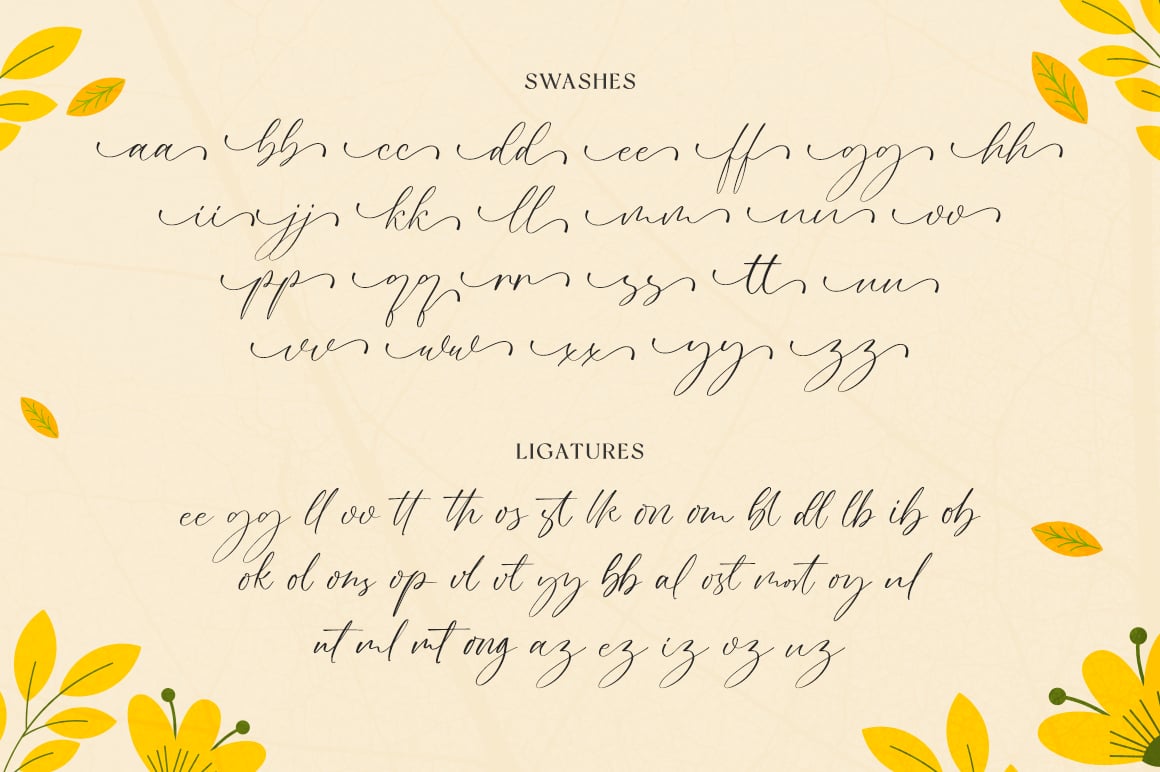 SWASHES
aa bb cc dd ee ff gg hh
ii jj kk ll mm nn oo
pp qq rr ss tt uu
vv ww xx yy zz
LIGATURES
ee gg ll oo tt th os st lk on om bl dl lb ib ob
ok ol ons op vl vt yy bb al ost most oy nl
nt ml mt ong az ez iz oz uz